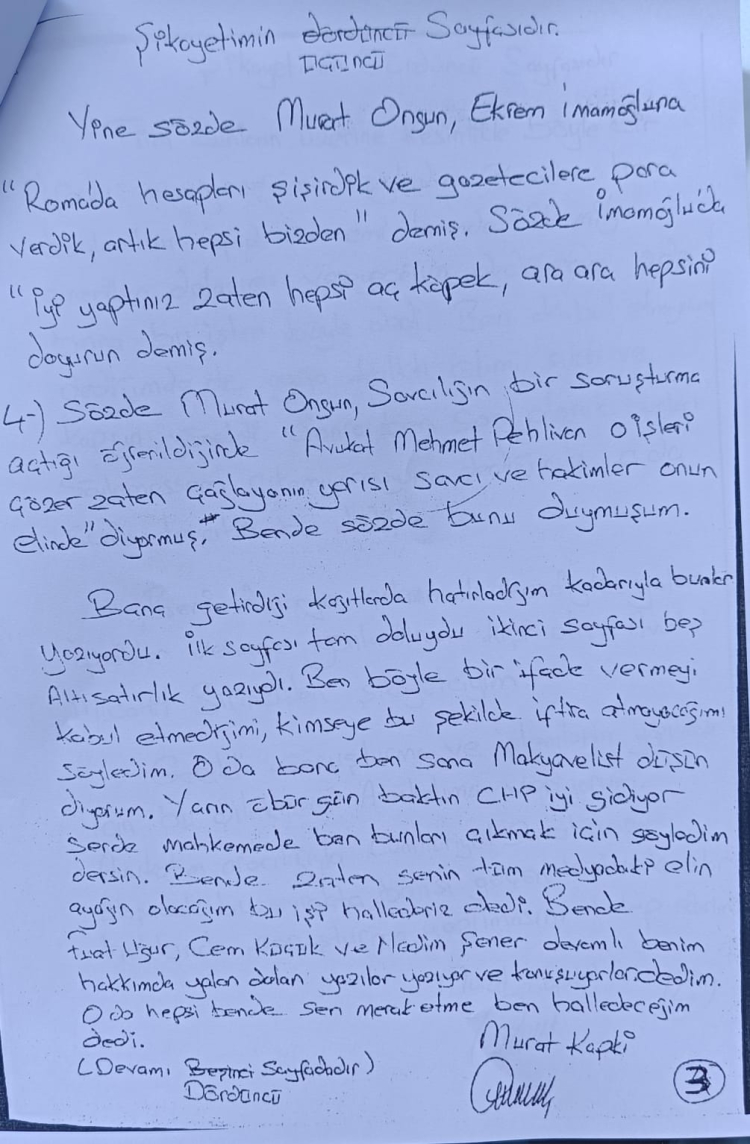 Şikayetimin dördüncü Sayfasıdır.
ÜÇÜNCÜ
Yine sözde Murat Ongun, Ekrem İmamoğluna
"Roma'da hesapları şişirdik ve gazetecilere para
verdik, artık hepsi bizden" demiş. Sözde İmamoğluda
"İyi yaptınız zaten hepsi aç köpek, ara ara hepsini
doyurun demiş.
4-) Sözde Murat Ongun, Savcılığın bir soruşturma
açtığı öğrenildiğinde "Avukat Mehmet Pehlivan o işleri
çözer zaten Çağlayanın yarısı savcı ve hakimler onun
elinde" diyormuş. Bende sözde bunu duymuşum.
Bana getirdiği kağıtlarda hatırladığım kadarıyla bunlar
yazıyordu. İlk sayfası tam doluydu ikinci sayfası beş
Altı satırlık yazıydı. Ben böyle bir ifade vermeyi
kabul etmediğimi, kimseye bu şekilde iftira atmayacağımı
söyledim. O da bana ben sana Makyavelist düşün
diyorum. Yarın öbür gün baktın CHP iyi gidiyor
Sende mahkemede ben bunları çıkmak için söyledim
dersin. Bende zaten senin tüm medyadaki elin
ayağın olacağım bu işi hallederiz dedi. Bende
Fuat Uğur, Cem Küçük ve Nedim Şener devamlı benim
hakkımda yalan dolan yazılar yazıyor ve konuşuyorlar dedim.
O da hepsi bende sen merak etme ben halledeceğim
dedi.
Murat Kapki
(Devamı Beşinci Sayfadadır)
Dördüncü
3